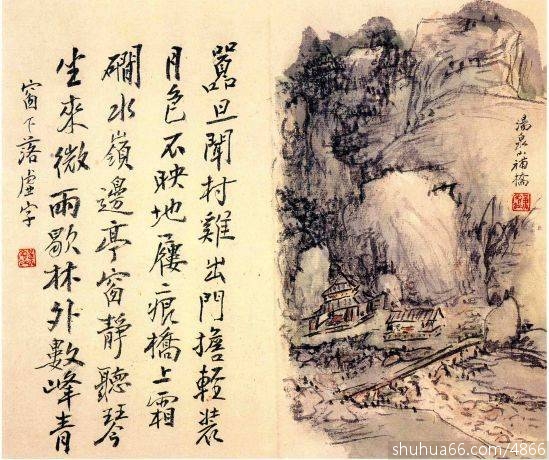 囂旦聞村雞出門擔輕裝
月色不映地屨痕橋上霜
磵水嶺邊亭窗靜聽琴
坐來微雨歇林外數峰青
窗下落虛字
湯泉小補
shuhua66.com/4866